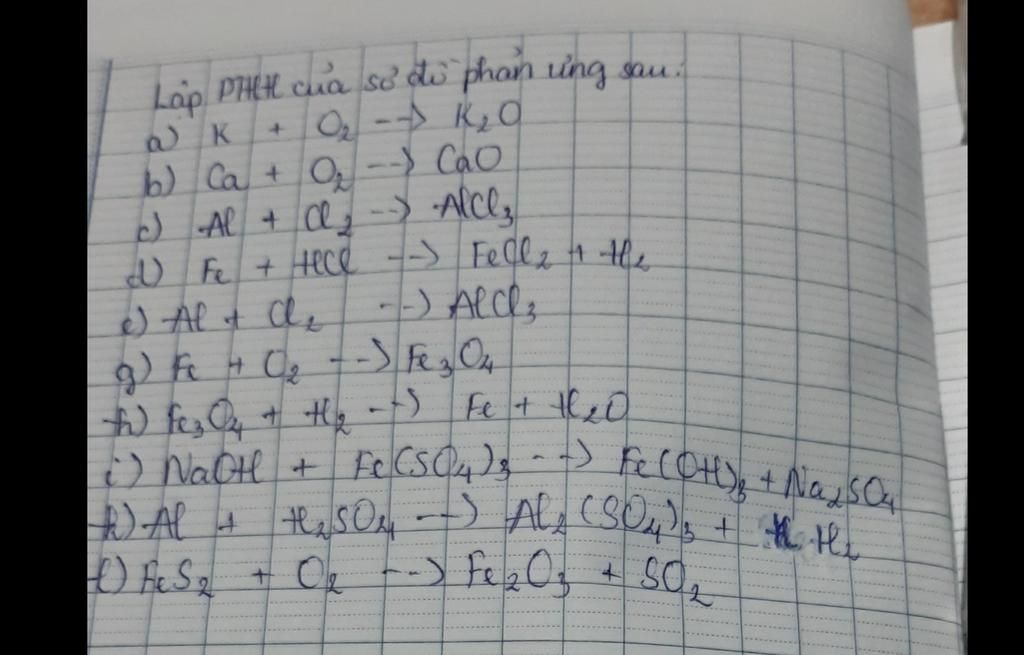 Lập PTHH của sơ đồ phản ứng sau:
a) K + O₂ --> K₂O
b) Ca + O₂ --> CaO
c) Al + Cl₂ --> AlCl₃
d) Fe + HCl --> FeCl₂ + H₂
e) Al + Cl₂ --> AlCl₃
g) Fe + O₂ --> Fe₃O₄
h) Fe₃O₄ + H₂ --> Fe + H₂O
i) NaOH + Fe(SO₄)₃ --> Fe(OH)₃ + Na₂SO₄
k) Al + H₂SO₄ --> Al₂(SO₄)₃ + H₂
l) FeS₂ + O₂ --> Fe₂O₃ + SO₂